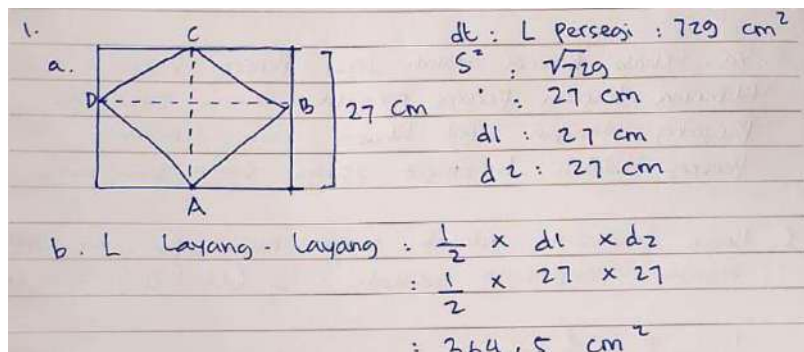 1.
a.
C
D
B
A
27 cm
dt : L Persegi : 729 cm²
S² : √729
: 27 cm
d1 : 27 cm
d2 : 27 cm
b. L Layang-layang : 1/2 x d1 x d2
: 1/2 x 27 x 27
: 364,5 cm²